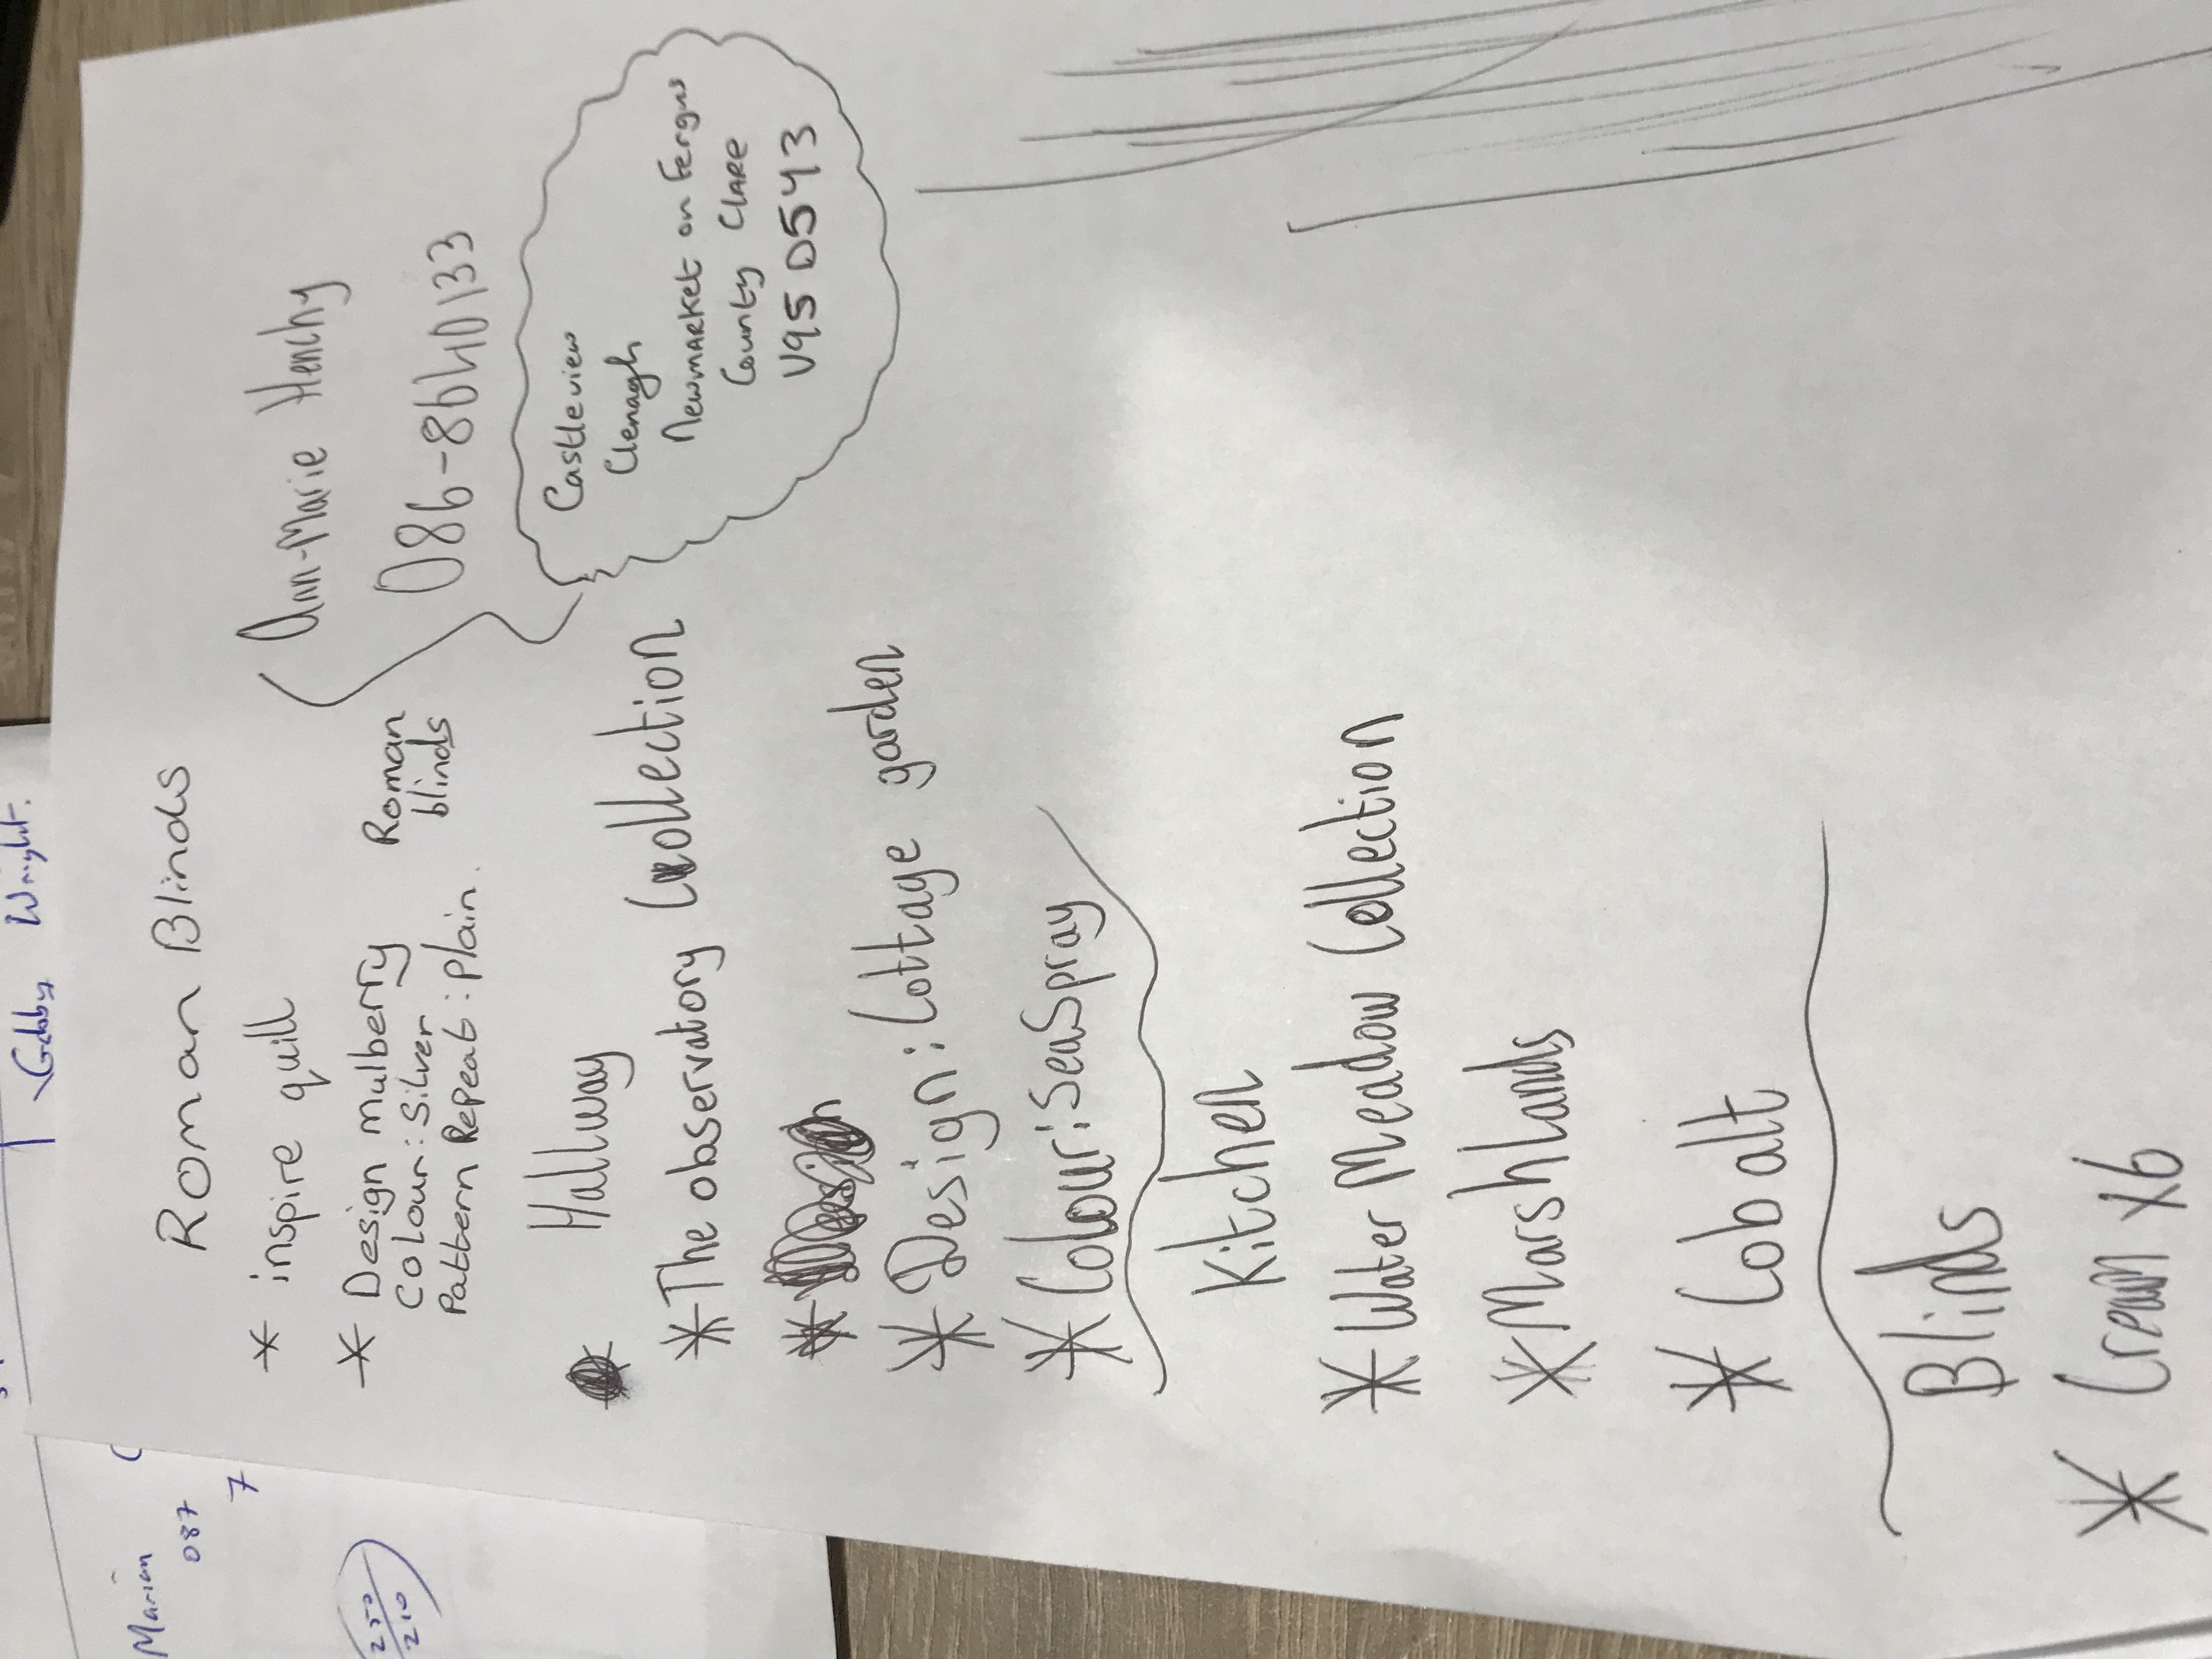 Roman Blinds
Ann-Marie Henchy
086-8640133
* inspire quill
* Design mulberry
Colour: Silver
Pattern Repeat: Plain.
Roman
blinds
Castleview
Clenagh
Newmarket on Fergus
County Clare
V95 D543
Hallway
* The observatory Collection
* Design: Cottage garden
* Colour: Sea Spray
Kitchen
* Water Meadow Collection
* Marshlands
* Cobalt
Blinds
* Cream x6
Gabby Wright.
Marian
087
7
250
210